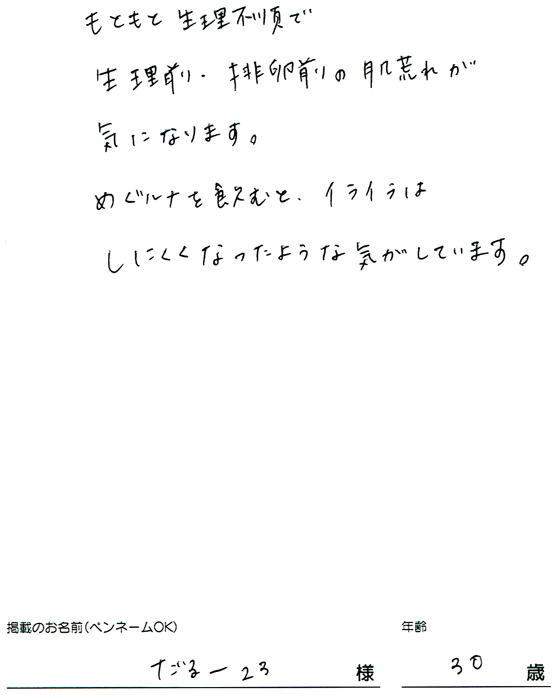 もともと生理不順で
生理前・排卵前の肌荒れが
気になります。
めぐルナを飲むと、イライラは
しにくくなったような気がしています。
掲載のお名前(ペンネームOK) 年齢
だるー23 様 30 歳